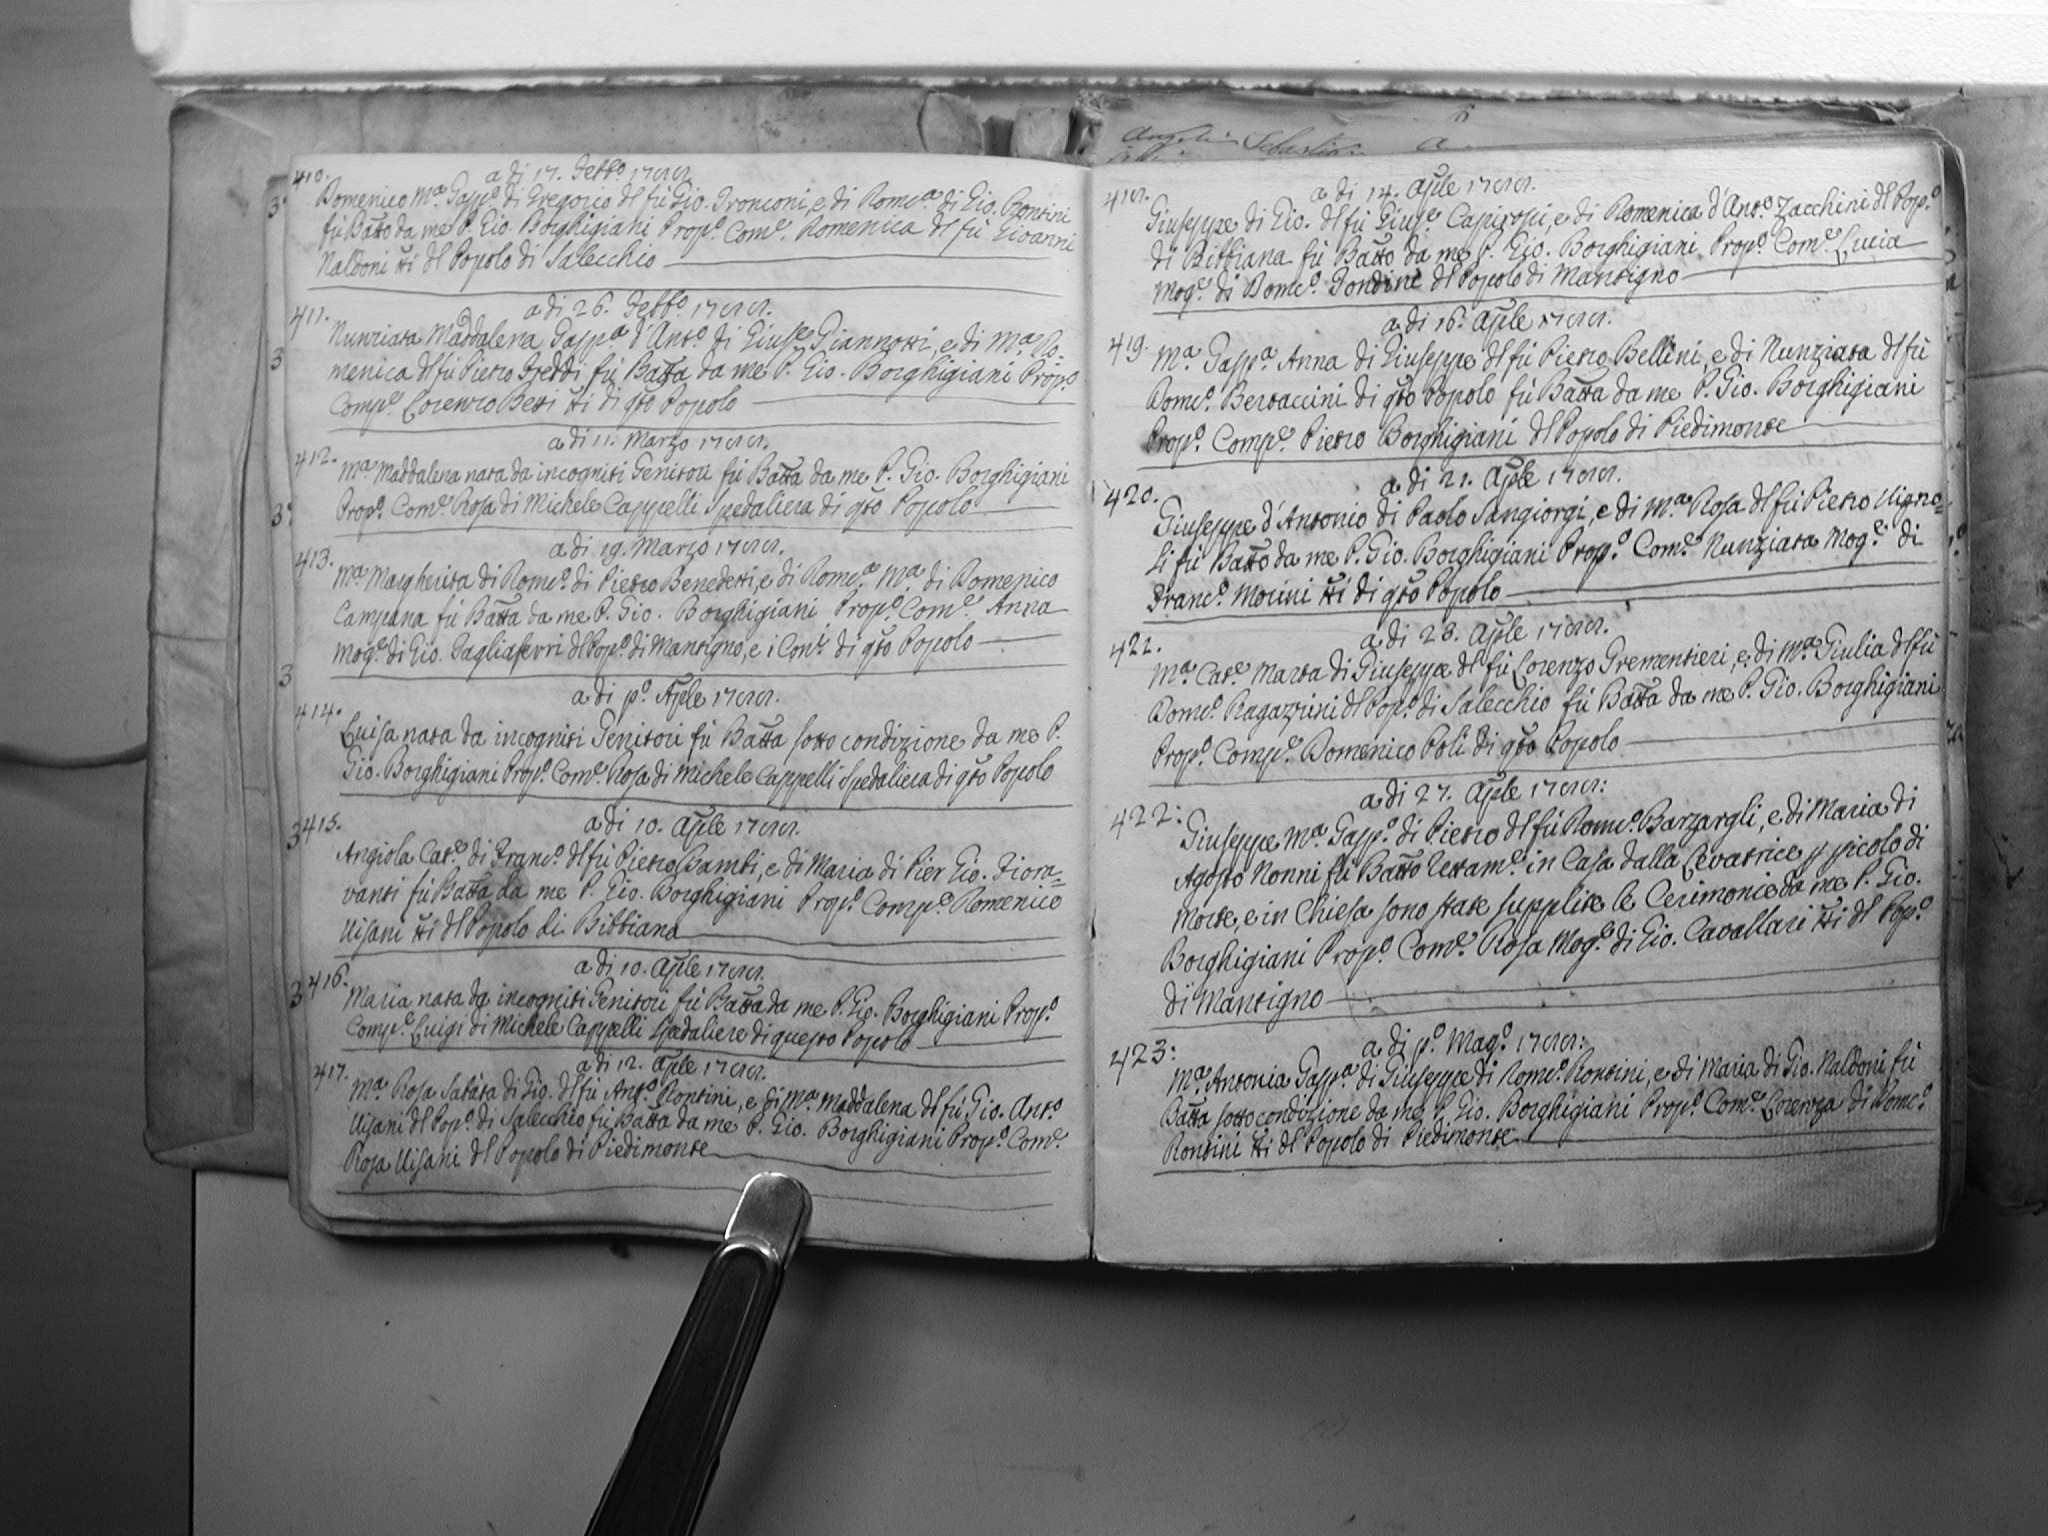 410.
a di 17. Febb.o 1788.
Domenico M.a Gasp.e di Gregorio dl fù Gio. Fronconi, e di Dom.ca di Gio. Rontini
fù Batt.o da me P. Gio. Borghigiani Prop.o Com.e Domenica dl fù Gioanni
Naldoni tti dl Popolo di Salecchio
411.
a di 26. Febb.o 1788.
Nunziata Maddalena Gasp.a d'Ant.o di Gius.e Giannotti, e di M.a Do=
menica dl fù Pietro Freddi fù Batta da me P. Gio. Borghigiani Prop.o
Comp.e Lorenzo Betti tti di qsto Popolo
412.
a di 11. Marzo 1788.
M.a Maddalena nata da incogniti Genitori fù Batta da me P. Gio. Borghigiani
Prop.o Com.e Rosa di Michele Cappelli Spedaliera di qsto Popolo
413.
a di 19. Marzo 1788.
M.a Margherita di Dom.co di Pietro Benedetti, e di Dom.ca M.a di Domenico
Campana fù Batta da me P. Gio. Borghigiani Prop.o Com.e Anna
Mog.e di Gio. Tagliaferri dl Pop.o di Mantigno, e i Con.i di qsto Popolo
414.
a di p.o Aple 1788.
Luisa nata da incogniti Genitori fù Batta sotto condizione da me P.
Gio. Borghigiani Prop.o Com.e Rosa di Michele Cappelli Spedaliera di qsto Popolo
415.
a di 10. Aple 1788.
Angiola Cat.a di Franc.o dl fù Pietro Bambi, e di Maria di Pier Gio. Fiora=
vanti fù Batta da me P. Gio. Borghigiani Prop.o Comp.e Domenico
Visani tti dl Popolo di Bibbiana
416.
a di 10. Aple 1788.
Maria nata da incogniti Genitori fù Batta da me P. Gio. Borghigiani Prop.o
Comp.e Luigi di Michele Cappelli Spedaliere di questo Popolo
417.
a di 12. Aple 1788.
M.a Rosa Sabata di Gio. dl fù Ant.o Rontini, e di M.a Maddalena dl fù Gio. Ant.o
Visani dl Pop.o di Salecchio fù Batta da me P. Gio. Borghigiani Prop.o Com.e
Rosa Visani dl Popolo di Piedimonte
418.
a di 14. Aple 1788.
Giuseppe di Gio. dl fù Gius.e Capirossi, e di Domenica d'Ant.o Zacchini dl Pop.o
di Bibbiana fù Batto da me P. Gio. Borghigiani Prop.o Com.e Lucia
Mog.e di Dom.co Tondini dl Popolo di Mantigno
419.
a di 16. Aple 1788.
M.a Gasp.a Anna di Giuseppe dl fù Pietro Bellini, e di Nunziata dl fù
Dom.co Bertaccini di qsto Popolo fù Batta da me P. Gio. Borghigiani
Prop.o Comp.e Pietro Borghigiani dl Popolo di Piedimonte
420.
a di 21. Aple 1788.
Giuseppe d'Antonio di Paolo Sangiorgi, e di M.a Rosa dl fù Pietro Vigno=
li fù Batto da me P. Gio. Borghigiani Prop.o Com.e Nunziata Mog.e di
Franc.o Morini tti di qsto Popolo
421.
a di 23. Aple 1788.
M.a Cat.a Marta di Giuseppe dl fù Lorenzo Grementieri, e di M.a Giulia dl fù
Dom.co Ragazzini dl Pop.o di Salecchio fù Batta da me P. Gio. Borghigiani
Prop.o Comp.e Domenico Poli di qsto Popolo
422:
a di 27. Aple 1788:
Giuseppe M.a Gasp.e di Pietro dl fù Dom.co Barzargli, e di Maria di
Agosto Nonni fù Batto Rettam.e in Casa dalla Levatrice p picolo di
Morte, e in Chiesa sono state supplite le Cerimonie da me P. Gio.
Borghigiani Prop.o Com.e Rosa Mog.e di Gio. Cavallari tti dl Pop.o
di Mantigno
423:
a di p.o Mag.o 1788:
M.a Antonia Gasp.a di Giuseppe di Dom.co Rontini, e di Maria di Gio. Naldoni fù
Batta sotto condizione da me P. Gio. Borghigiani Prop.o Com.e Lorenza di Dom.co
Rontini tti dl Popolo di Piedimonte